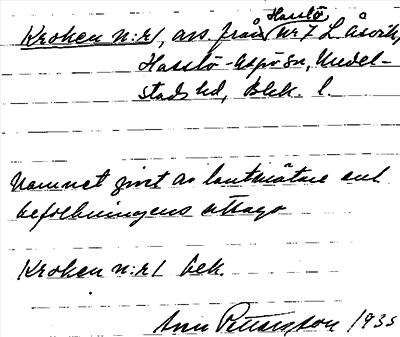 Kroken n:r 1, avs. från Hasslö nr 7 L. Åsvik,
Hasslö-Aspö sn, Medel-
stads hd, Blek. l.
Namnet givet av lantmätare enl
befolkningens utsago
Kroken n:r 1 bek.
Pettersson 1935